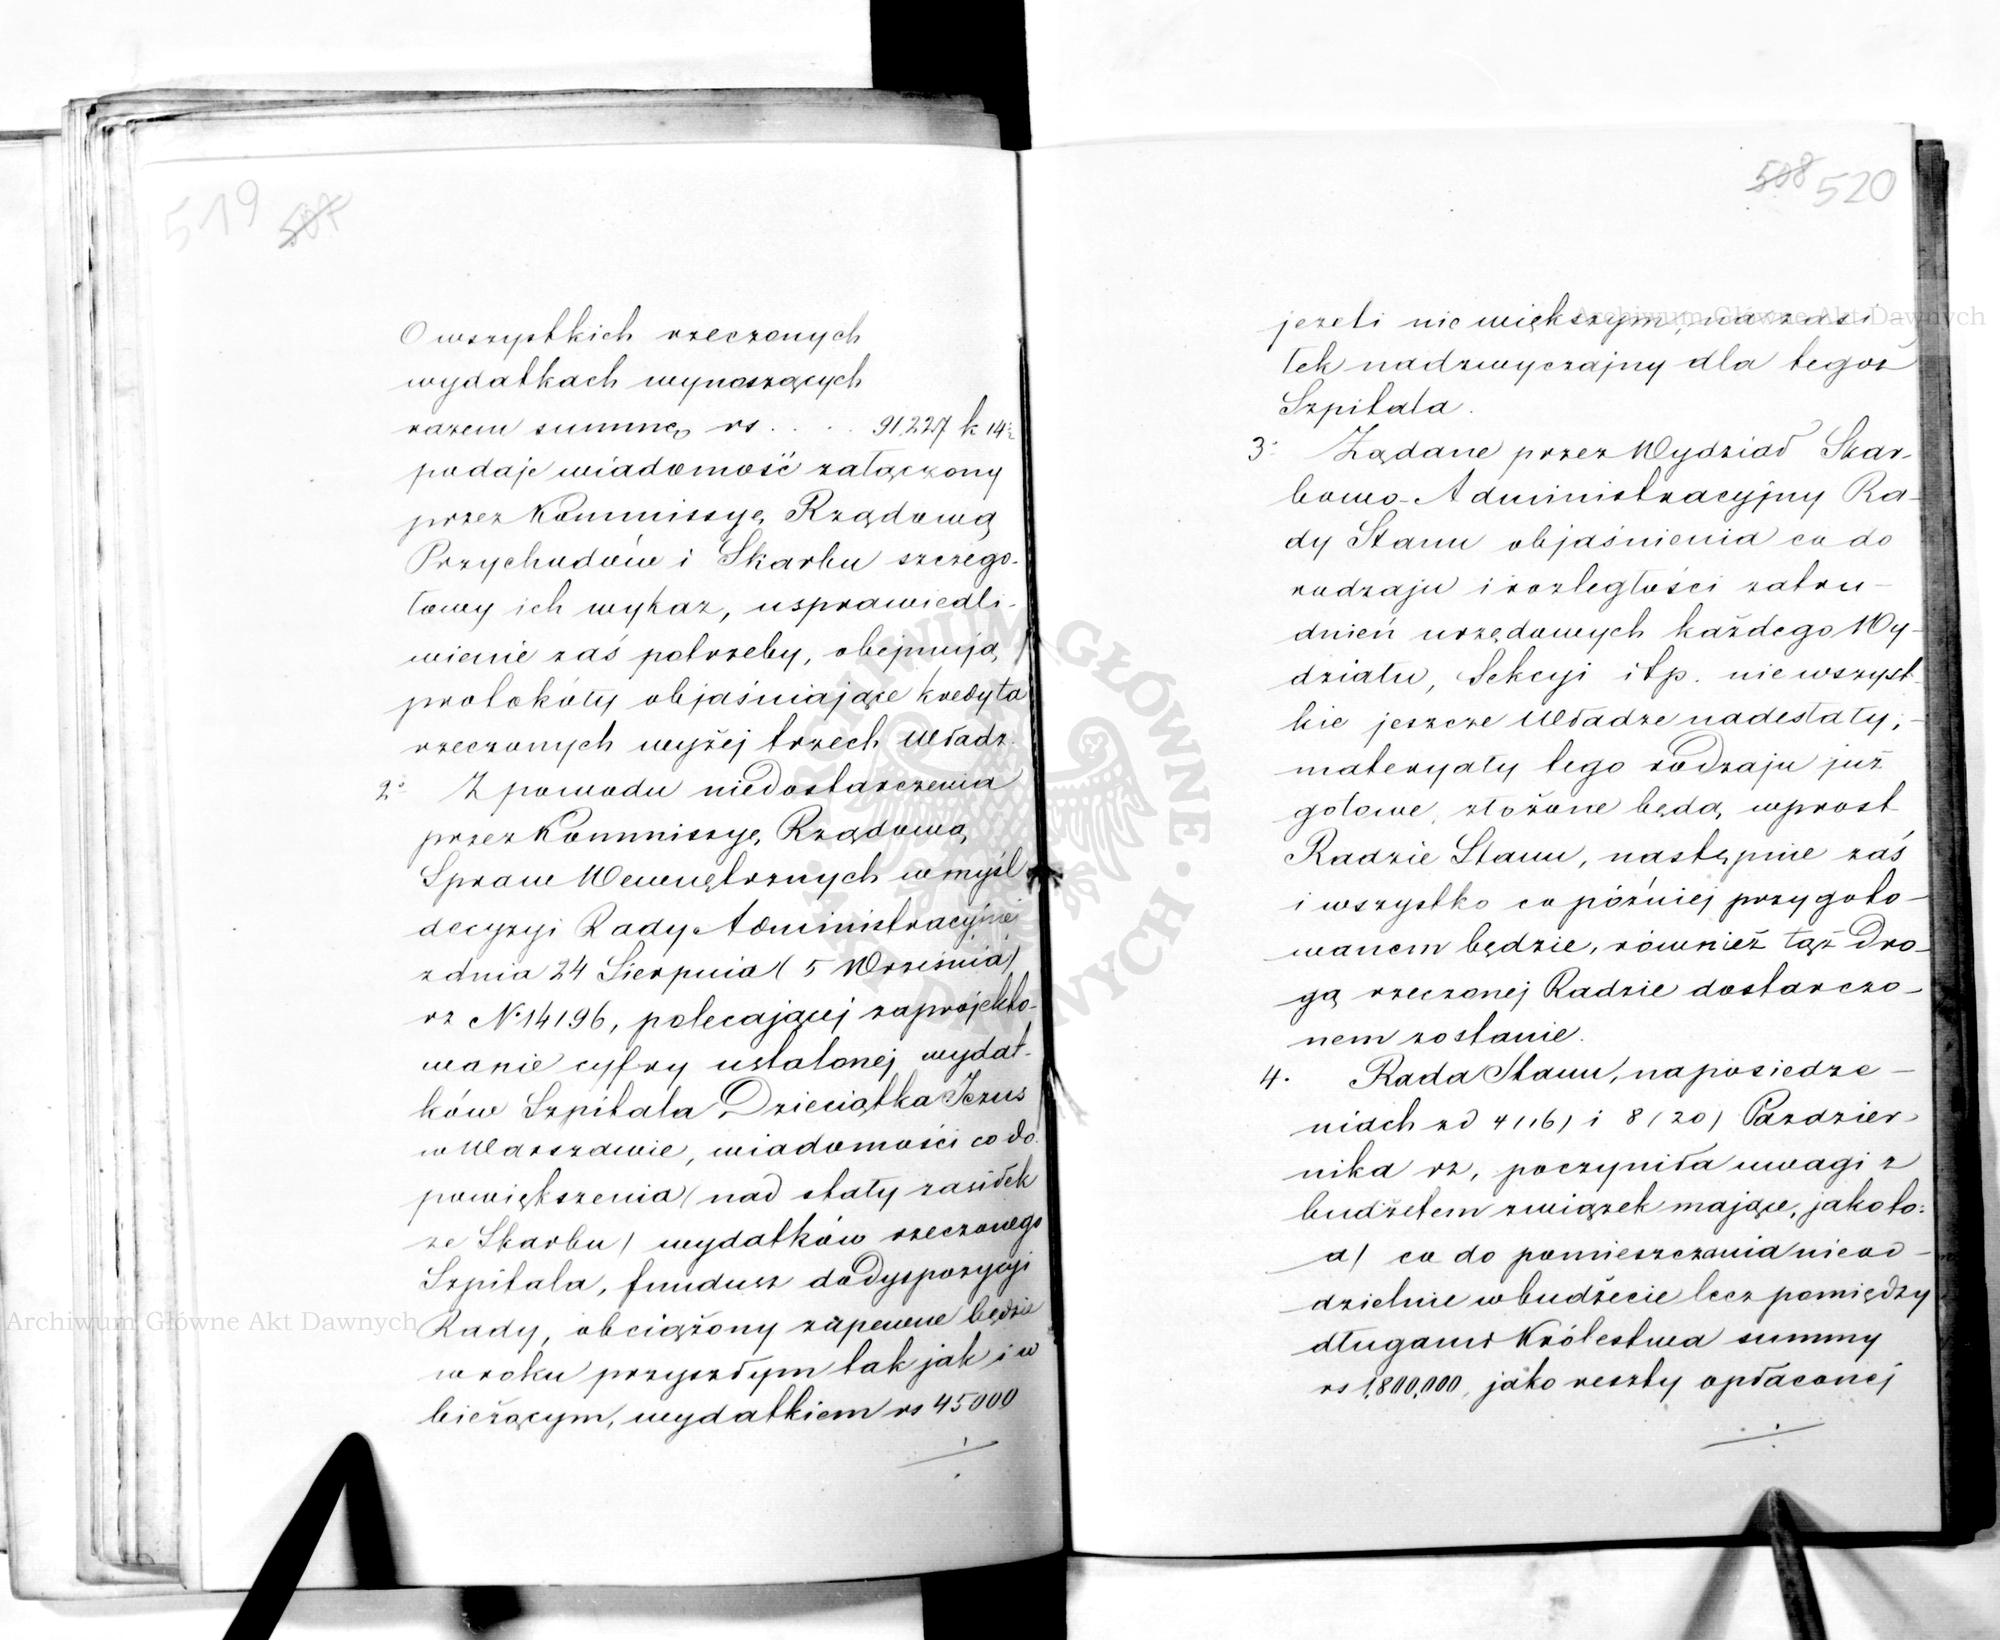 519 507
O wszystkich rzeczonych
wydatkach wynoszących
razem summę rs . . . . 91,227 k 14½
podaje wiadomość załączony
przez Kommissyę Rządową
Przychodów i Skarbu szczego-
łowy ich wykaz, usprawiedli-
wienie zaś potrzeby, obejmują
protokóły objaśniające kredyta
rzeczonych wyżej trzech Władz.
2° Z powodu niedostarczenia
przez Kommissyę Rządową
Spraw Wewnętrznych w myśl
decyzyi Rady Administracyjnej
z dnia 24 Sierpnia (5 Września)
rz № 14196, polecającej zaprojekto-
wanie cyfry ustalonej wydat-
ków Szpitala Dzieciątka Jezus
w Warszawie, wiadomości co do
powiększenia (nad stały zasiłek
ze Skarbu) wydatków rzeczonego
Szpitala, fundusz do dyspozycyi
Rady, obciążony zapewne będzie
w roku przyszłym tak jak i w
bieżącym, wydatkiem rs 45000
508 520
jeżeli nie większym, na zasi
łek nadzwyczajny dla tegoż
Szpitala.
3° Żądane przez Wydział Skar-
bowo-Administracyjny Ra-
dy Stanu objaśnienia co do
rodzaju i rozległości zatru-
dnień urzędowych każdego Wy-
działu, Sekcyi itp. nie wszyst-
kie jeszcze Władze nadesłały;-
materyały tego rodzaju już
gotowe, złożone będą wprost
Radzie Stanu, następnie zaś
i wszystko co później przygoto-
wanem będzie, również tąż dro-
gą rzeczonej Radzie dostarczo-
nem zostanie.
4. Rada Stanu, na posiedze-
niach zd 4 (16) i 8 (20) Paździer-
nika rz, poczyniła uwagi z
budżetem związek mające, jako to:
a) co do pomieszczania nie od-
dzielnie w budżecie lecz pomiędzy
długami Królestwa summy
rs 1,800,000, jako reszty opłaconej
Archiwum Główne Akt Dawnych
Archiwum Główne Akt Dawnych
ARCHIWUM GŁÓWNE AKT DAWNYCH